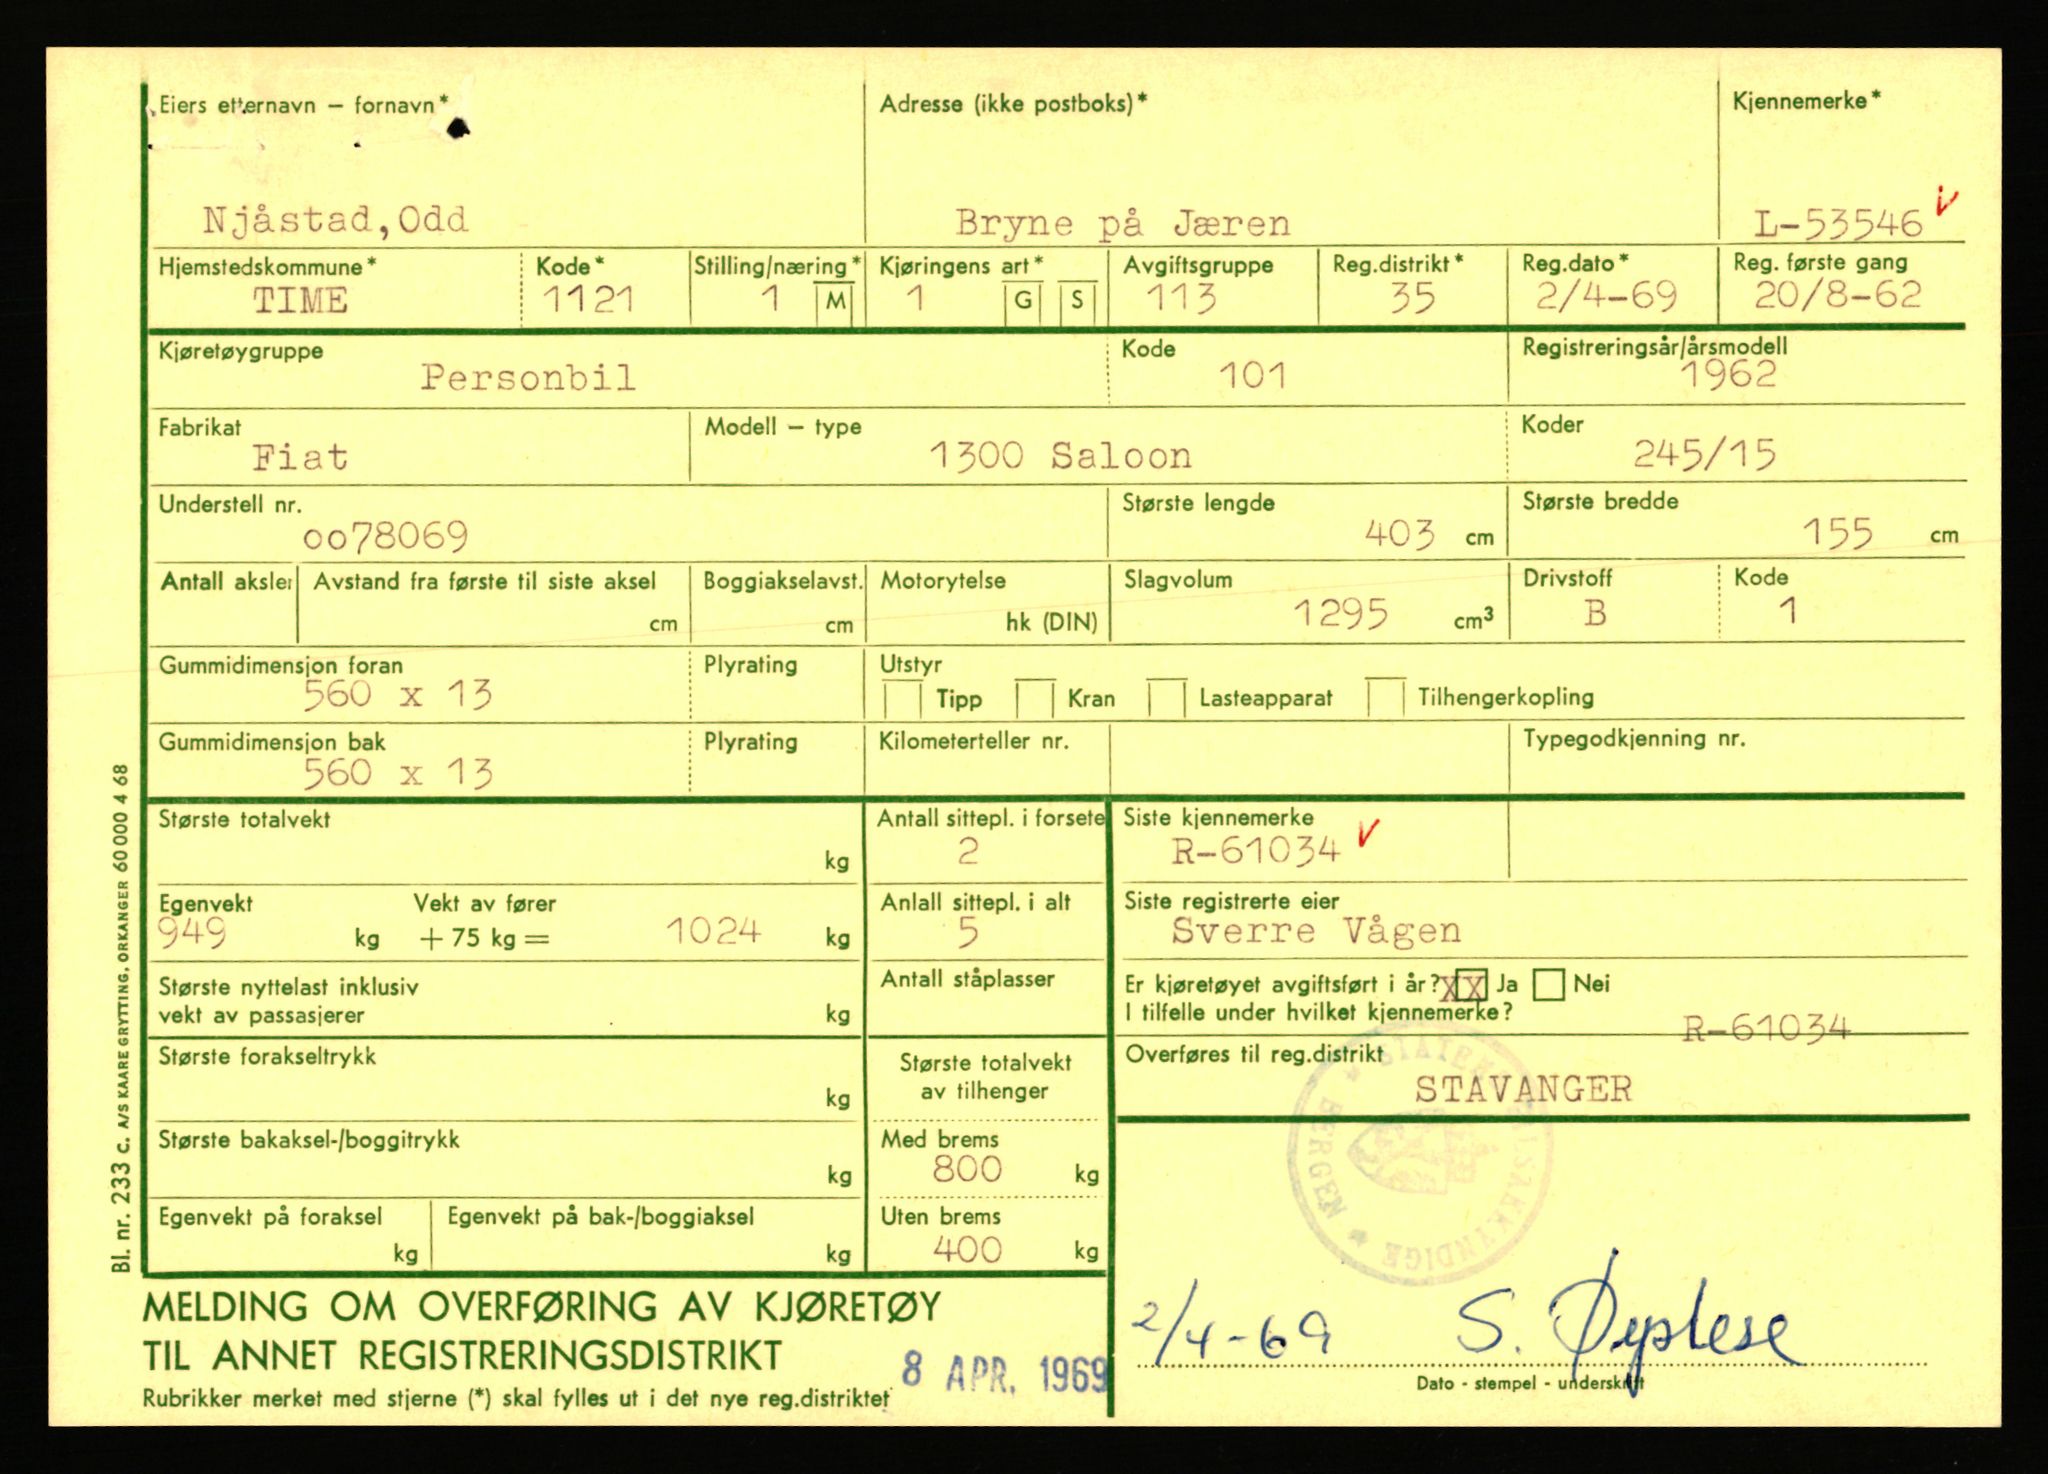 Eiers etternavn – fornavn* Adresse (ikke postboks)* Kjennemerke*
Njåstad,Odd Bryne på Jæren L-53546
Hjemstedskommune* Kode* Stilling/næring* Kjøringens art* Avgiftsgruppe Reg.distrikt* Reg.dato* Reg. første gang
TIME 1121 1 M 1 G S 113 35 2/4-69 20/8-62
Kjøretøygruppe Kode Registreringsår/årsmodell
Personbil 101 1962
Fabrikat Modell – type Koder
Fiat 1300 Saloon 245/15
Understell nr. Største lengde Største bredde
oo78069 403 cm 155 cm
Antall aksler Avstand fra første til siste aksel Boggiakselavst. Motorytelse Slagvolum Drivstoff Kode
cm cm hk (DIN) 1295 cm³ B 1
Gummidimensjon foran Plyrating Utstyr
560 x 13 Tipp Kran Lasteapparat Tilhengerkopling
Gummidimensjon bak Plyrating Kilometerteller nr. Typegodkjenning nr.
560 x 13
Største totalvekt Antall sittepl. i forsete Siste kjennemerke
kg 2 R-61034
Egenvekt Vekt av fører Anlall sittepl. i alt Siste registrerte eier
949 kg + 75 kg = 1024 kg 5 Sverre Vågen
Største nyttelast inklusiv Antall ståplasser Er kjøretøyet avgiftsført i år? XX Ja Nei
vekt av passasjerer kg I tilfelle under hvilket kjennemerke?
R-61034
Største forakseltrykk Største totalvekt Overføres til reg.distrikt
kg av tilhenger STAVANGER
Største bakaksel-/boggitrykk Med brems
kg 800 kg
Egenvekt på foraksel Egenvekt på bak-/boggiaksel Uten brems
kg kg 400 kg
STATENS BILSAKKYNDIGE * BERGEN *
MELDING OM OVERFØRING AV KJØRETØY
TIL ANNET REGISTRERINGSDISTRIKT
8 APR. 1969
2/4-69 S.
Rubrikker merket med stjerne (*) skal fylles ut i det nye reg.distriktet
Dato - stempel - underskrift
Bl. nr. 233 c. A/S KAARE GRYTTING, ORKANGER 60000 4 68